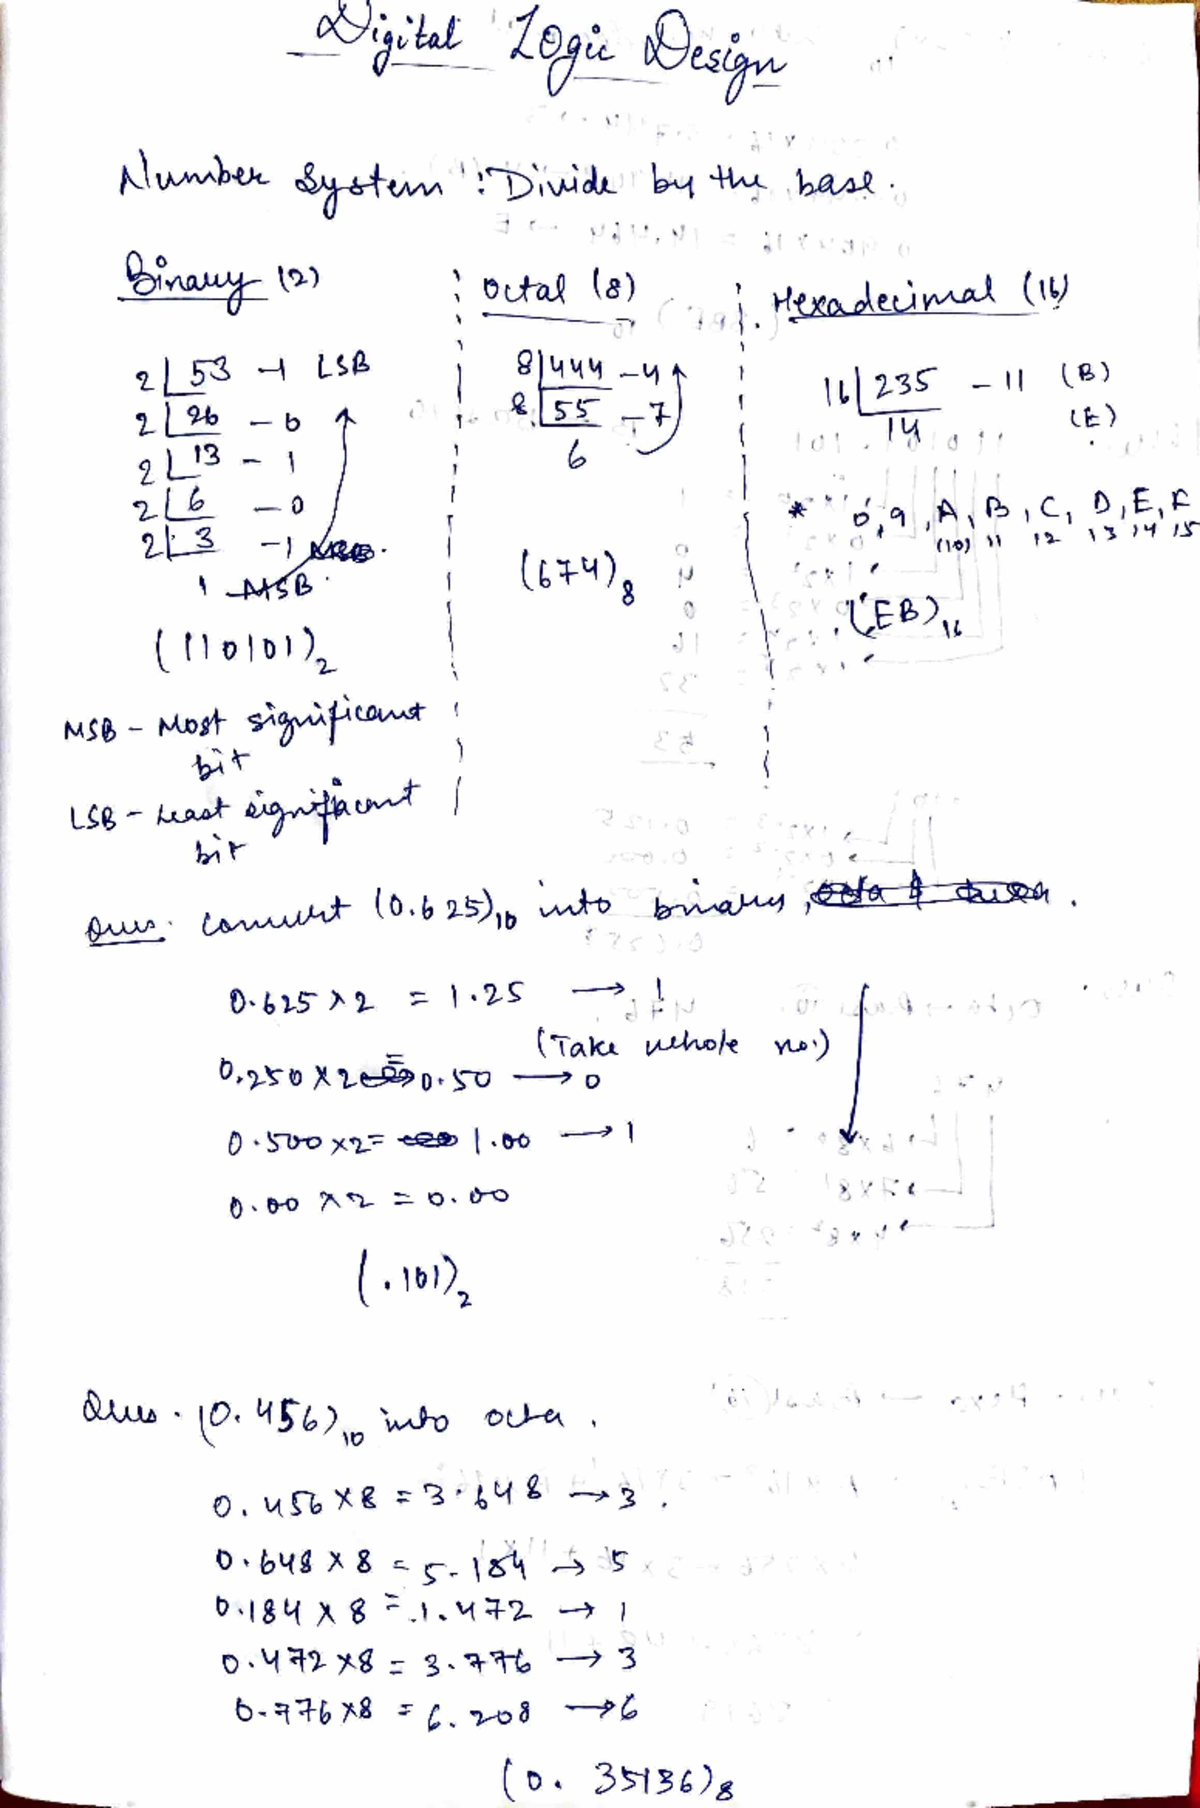 Digital Logic Design
Number System : Divide by the base.
Binary (2)
2 53 - 1 LSB
2 26 - 0
2 13 - 1
2 6 - 0
2 3 - 1
1 MSB
(110101)₂
MSB - Most significant
bit
LSB - Least significant
bit
Octal (8)
8 444 - 4
8 55 - 7
6
(674)₈
Hexadecimal (16)
16 235 - 11 (B)
14 (E)
* 0,9, A, B, C, D, E, F
(10) 11 12 13 14 15
(EB)₁₆
Ques. Convert (0.625)₁₀ into binary,
0.625 × 2 = 1.25 → 1
(Take whole no.)
0.250 × 2 = 0.50 → 0
0.500 × 2 = 1.00 → 1
0.00 × 2 = 0.00
(.101)₂
Ques. (0.456)₁₀ into octa.
0.456 × 8 = 3.648 → 3.
0.648 × 8 = 5.184 → 5
0.184 × 8 = 1.472 → 1
0.472 × 8 = 3.776 → 3
0.776 × 8 = 6.208 → 6
(0.35136)₈